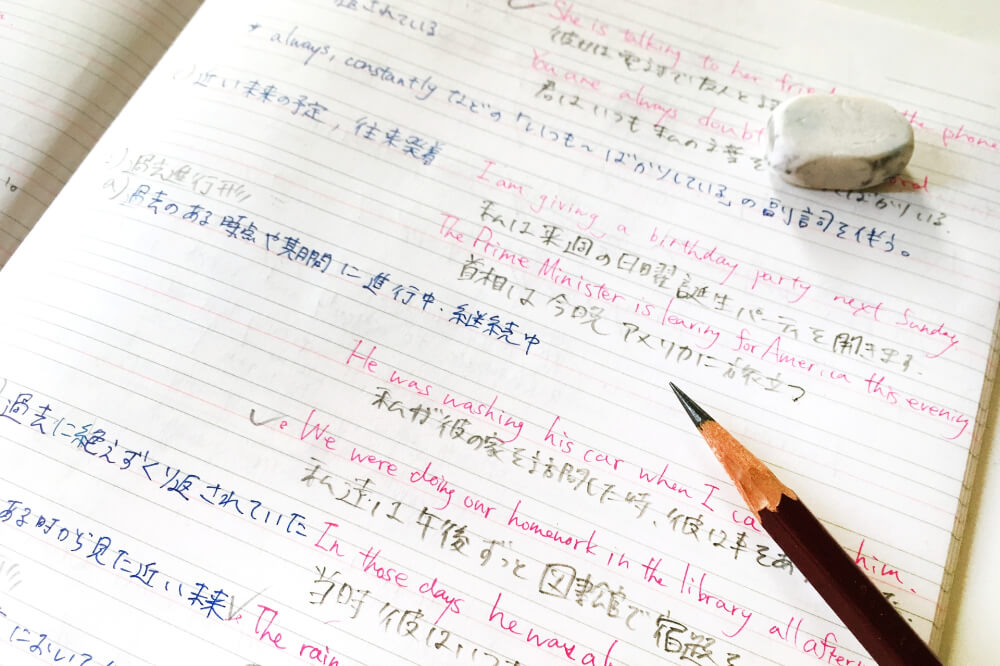 返されている
She is talking to her fri the phone
彼女は電話で友人と
* always, constantly などの「いつも〜ばかりしている」の副詞を伴う。
You are always doubt
君はいつも私の言葉を ばかりいる.
c) 近い未来の予定, 往来発着
I am giving a birthday party next Sunday
私は来週の日曜誕生パーティを開きます.
The Prime Minister is leaving for America this evening
首相は今晩アメリカに旅立つ
過去進行形
a) 過去のある時点や期間に進行中・継続中
He was washing his car when I ca him.
私が彼の家を訪問した時、彼は車を
We were doing our homework in the library all after
私達は午後ずっと図書館で宿題を
過去に絶えずくり返されていた
In those days he was al
当時彼はいつ
ある時から見た近い未来
The rain
において